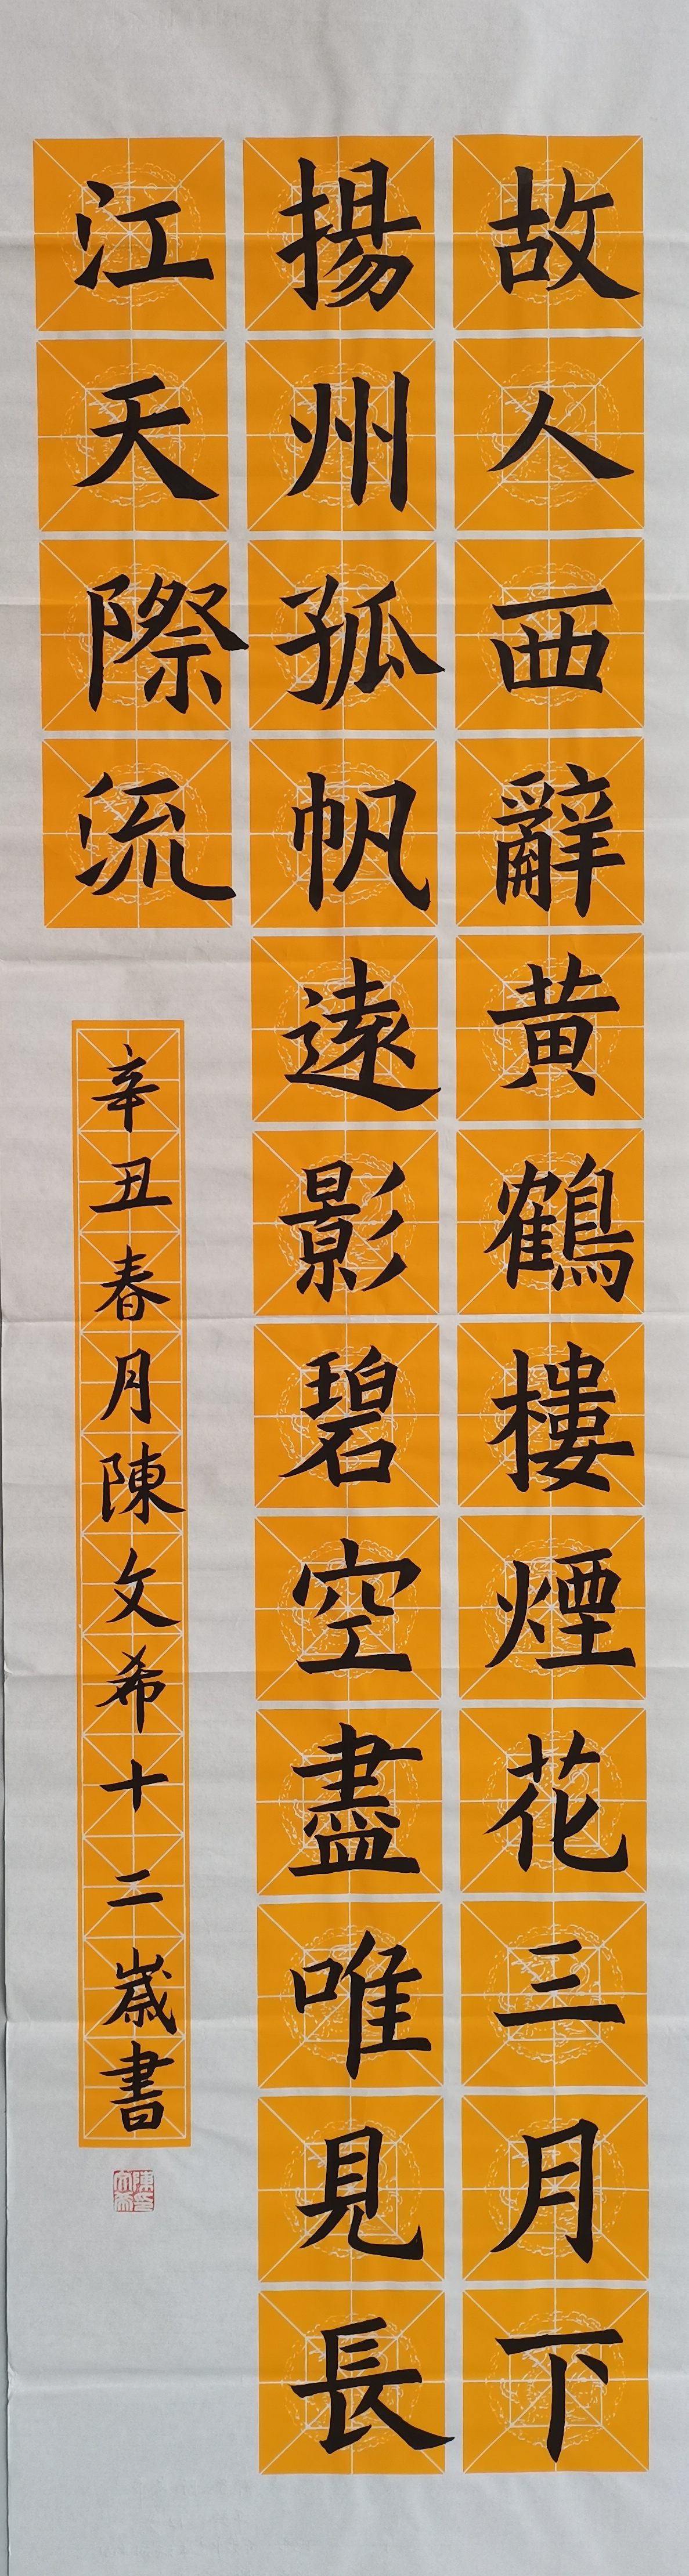 故人西辭黃鶴樓煙花三月下
揚州孤帆遠影碧空盡唯見長
江天際流
辛丑春月陳文希十二歲書